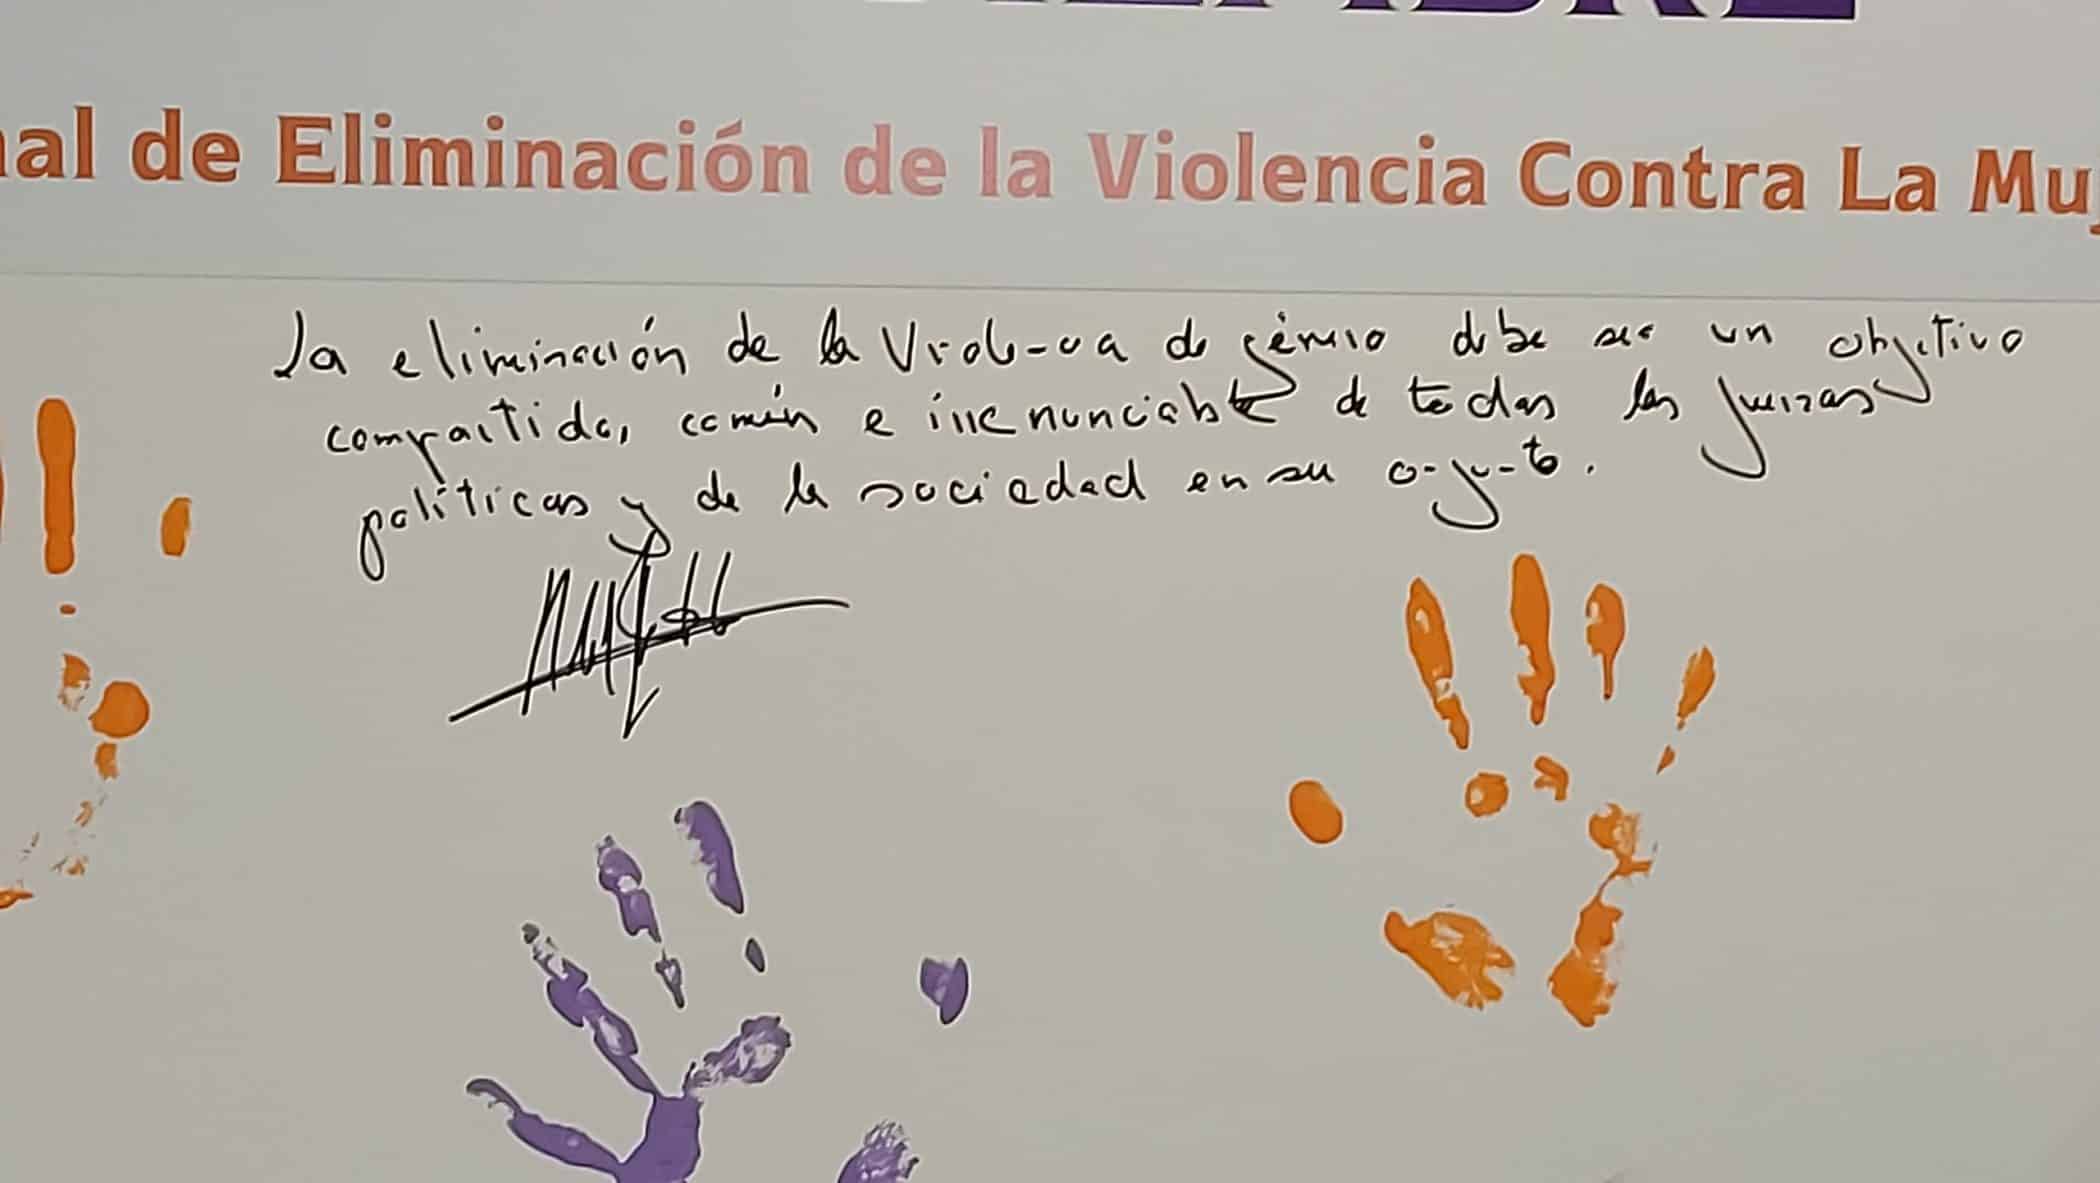 nal de Eliminación de la Violencia Contra La Muj
La eliminación de la Violencia de género debe ser un objetivo
compartido, común e irrenunciable de todas las fuerzas
políticas y de la sociedad en su conjunto.